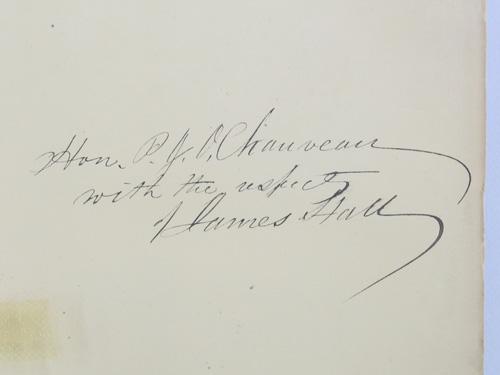 Hon. P. J. O. Chauveau
with the respect
of James Hall